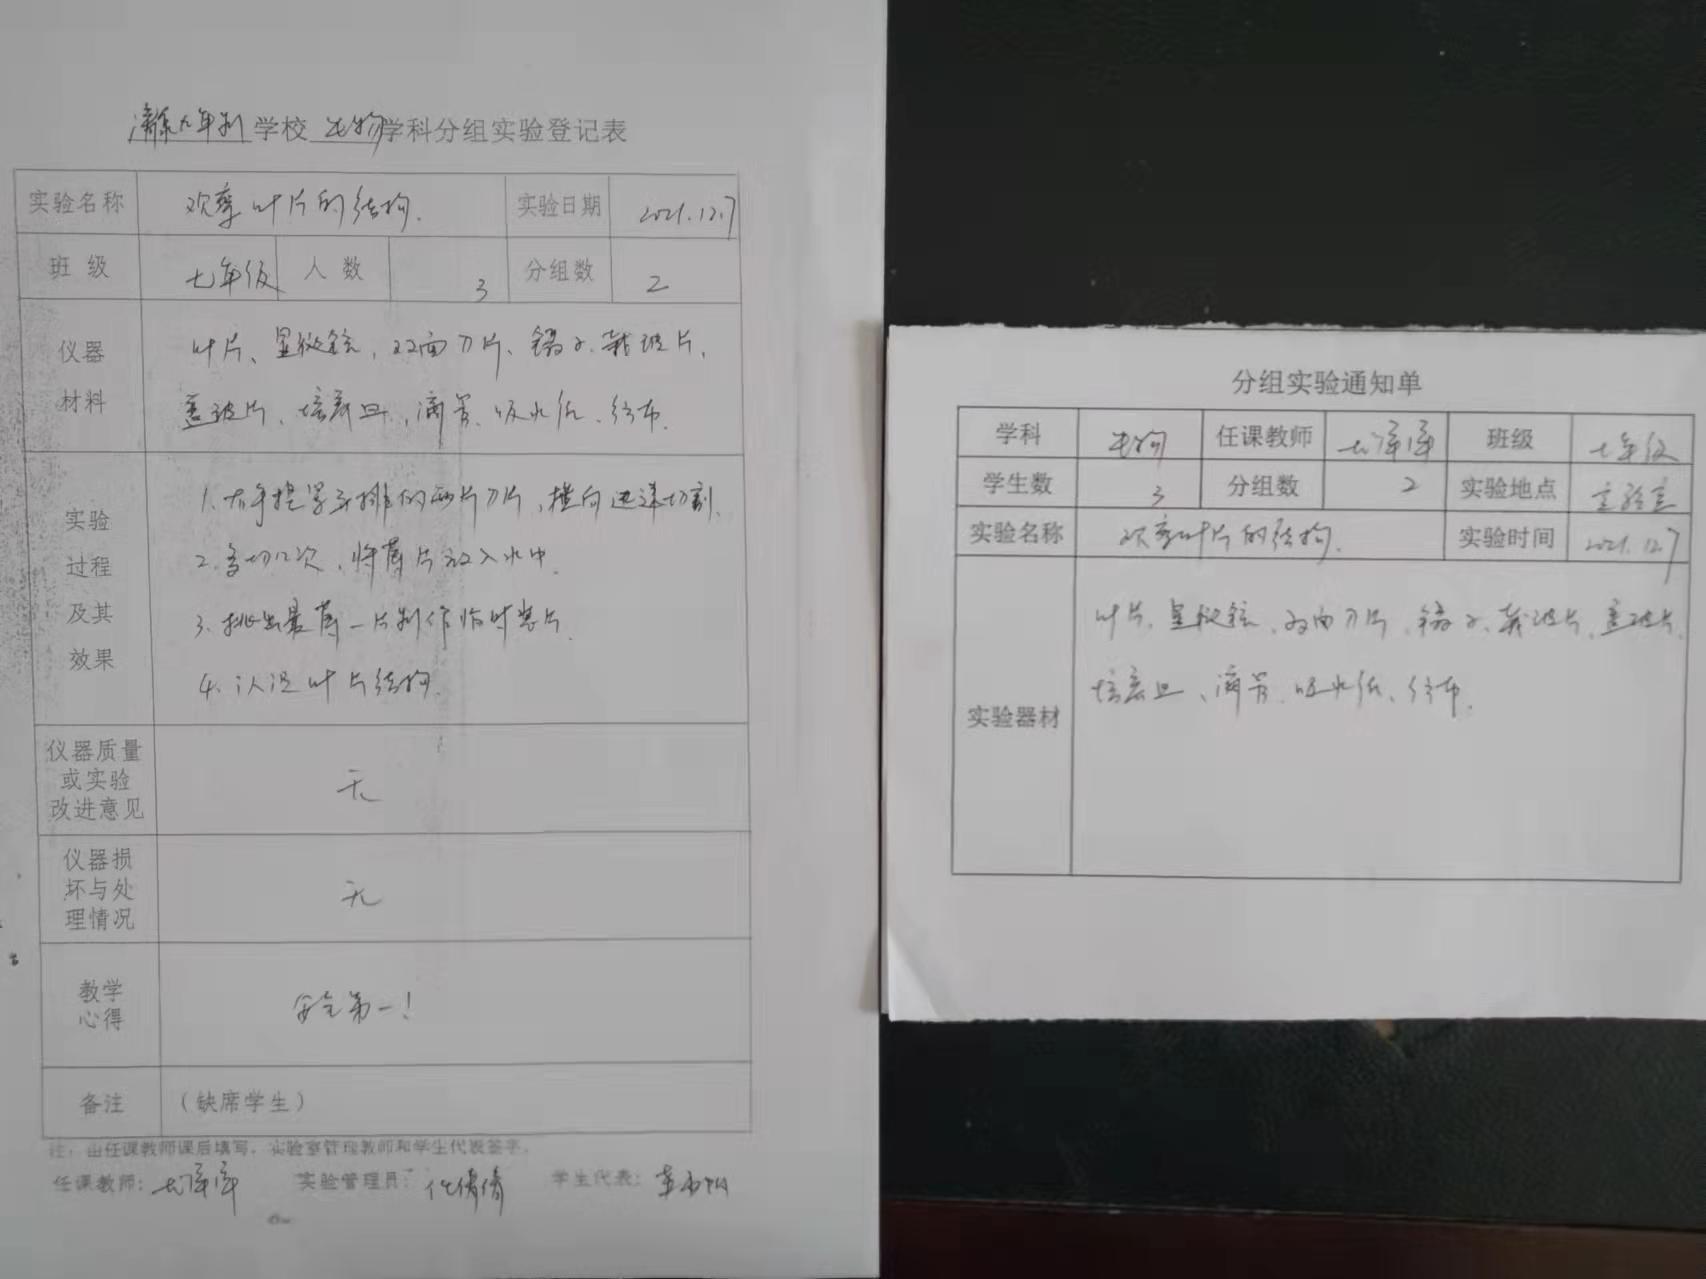 九年制学校 生物学科分组实验登记表
实验名称 观察叶片的结构. 实验日期 2021.12.7
班 级 七年级 人 数 3 分组数 2
仪器
材料
叶片、显微镜、双面刀片、镊子、载玻片、
盖玻片、培养皿、滴管、吸水纸、纱布.
实验
过程
及其
效果
1. 右手捏紧并排的两片刀片,横向迅速切割.
2. 多切几次、将薄片放入水中.
3. 挑出最薄一片制作临时装片.
4. 认识叶片结构.
仪器质量
或实验
改进意见
无
仪器损
坏与处
理情况
无
教学
心得
安全第一!
备注 (缺席学生)
注:由任课教师课后填写,实验室管理教师和学生代表签字。
任课教师: 实验管理员: 倩倩 学生代表:
分组实验通知单
学科 生物 任课教师 班级 七年级
学生数 3 分组数 2 实验地点 实验室
实验名称 观察叶片的结构. 实验时间 2021.12.7
实验器材
叶片、显微镜、双面刀片、镊子、载玻片、盖玻片、
培养皿、滴管、吸水纸、纱布.